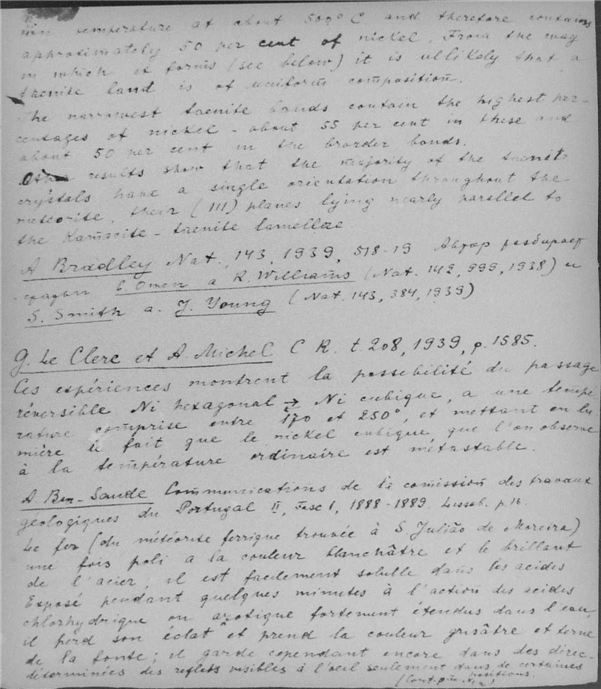 min temperature at about 500° C and therefore contains
approximately 50 per cent of nickel. From the way
in which it forms (see below) it is unlikely that a
taenite band is of uniform composition.
The narrowest taenite bands contain the highest per-
centages of nickel - about 55 per cent in these and
about 50 per cent in the broader bands.
Other results show that the majority of the taenite
crystals have a single orientation throughout the
meteorite, their (111) planes lying nearly parallel to
the Kamacite-taenite lamellae
A Bradley Nat. 143, 1939, 518-19 Автор разбирает
E. Owen a R. Williams (Nat. 142, 999, 1938) и
S. Smith a. J. Young (Nat. 143, 384, 1939)
G. Le Clerc et A. Michel C R. t 208, 1939, p. 1585.
Ces expériences montrent la possibilité du passage
réversible Ni hexagonal ⇄ Ni cubique, a une tempé
rature comprise entre 170 et 250°, et mettant en lu
mière le fait que le nickel cubique que l'on observe
à la température ordinaire est métastable.
A Ben-Saude Communications de la comission des travaux
géologiques du Portugal II, Fasc 1, 1888-1889. Lissab. p. 16.
Le fer (du météorite ferrique trouvée à S. Julião de Moreira)
une fois poli a la couleur blanchâtre et le brillant
de l'acier; il est facilement soluble dans les acides
Exposé pendant quelques minutes à l'action des acides
chlorhydrique ou azotique fortement étendus dans l'eau,
il perd son éclat et prend la couleur grisâtre et terne
de la fonte; il garde cependant encore dans des direc-
déterminées des reflets visibles à l'œil seulement dans de certaines
positions.